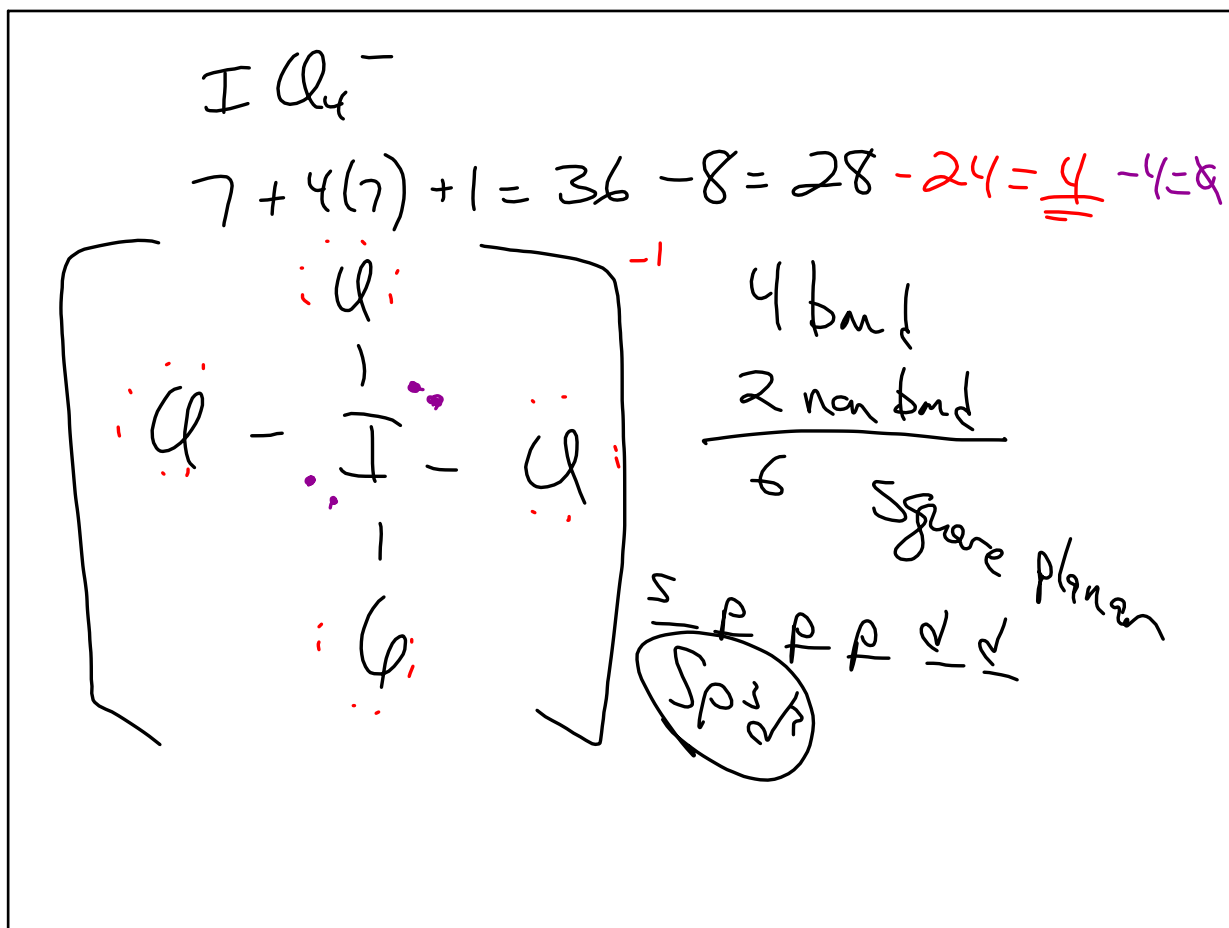 ICl₄⁻
7 + 4(7) + 1 = 36 - 8 = 28 - 24 = 4 - 4 = 0
-1
Cl
|
Cl - I - Cl
|
Cl
4 bond
2 non bond
6
Square planar
s p p p d d
Sp³d²